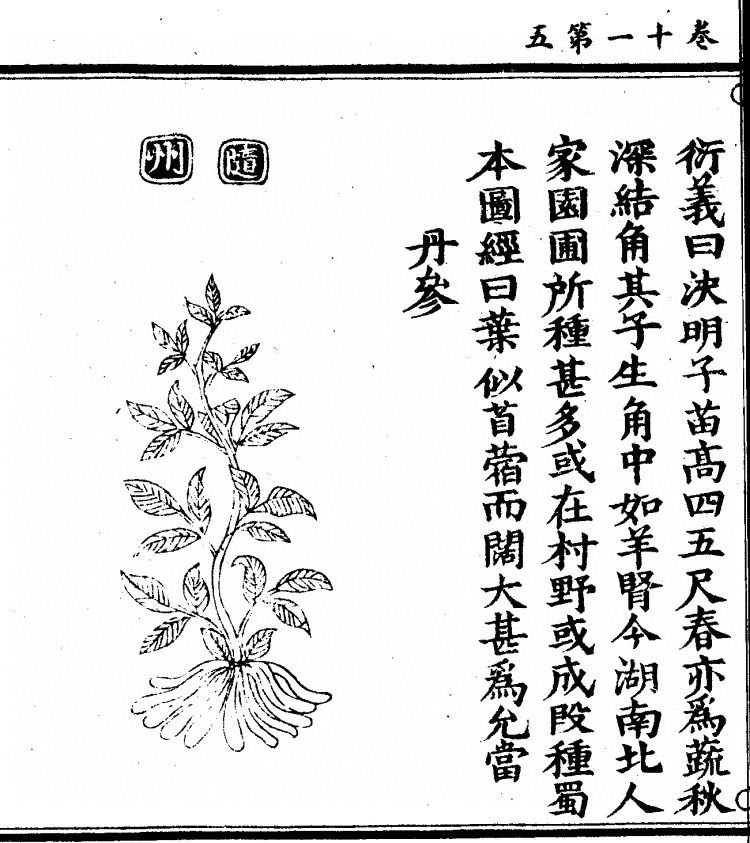 卷十一第五
衍義曰決明子苗高四五尺春亦爲蔬秋
深結角其子生角中如羊腎今湖南北人
家園圃所種甚多或在村野或成段種蜀
本圖經曰葉似苜蓿而闊大甚爲允當
丹參
隨州